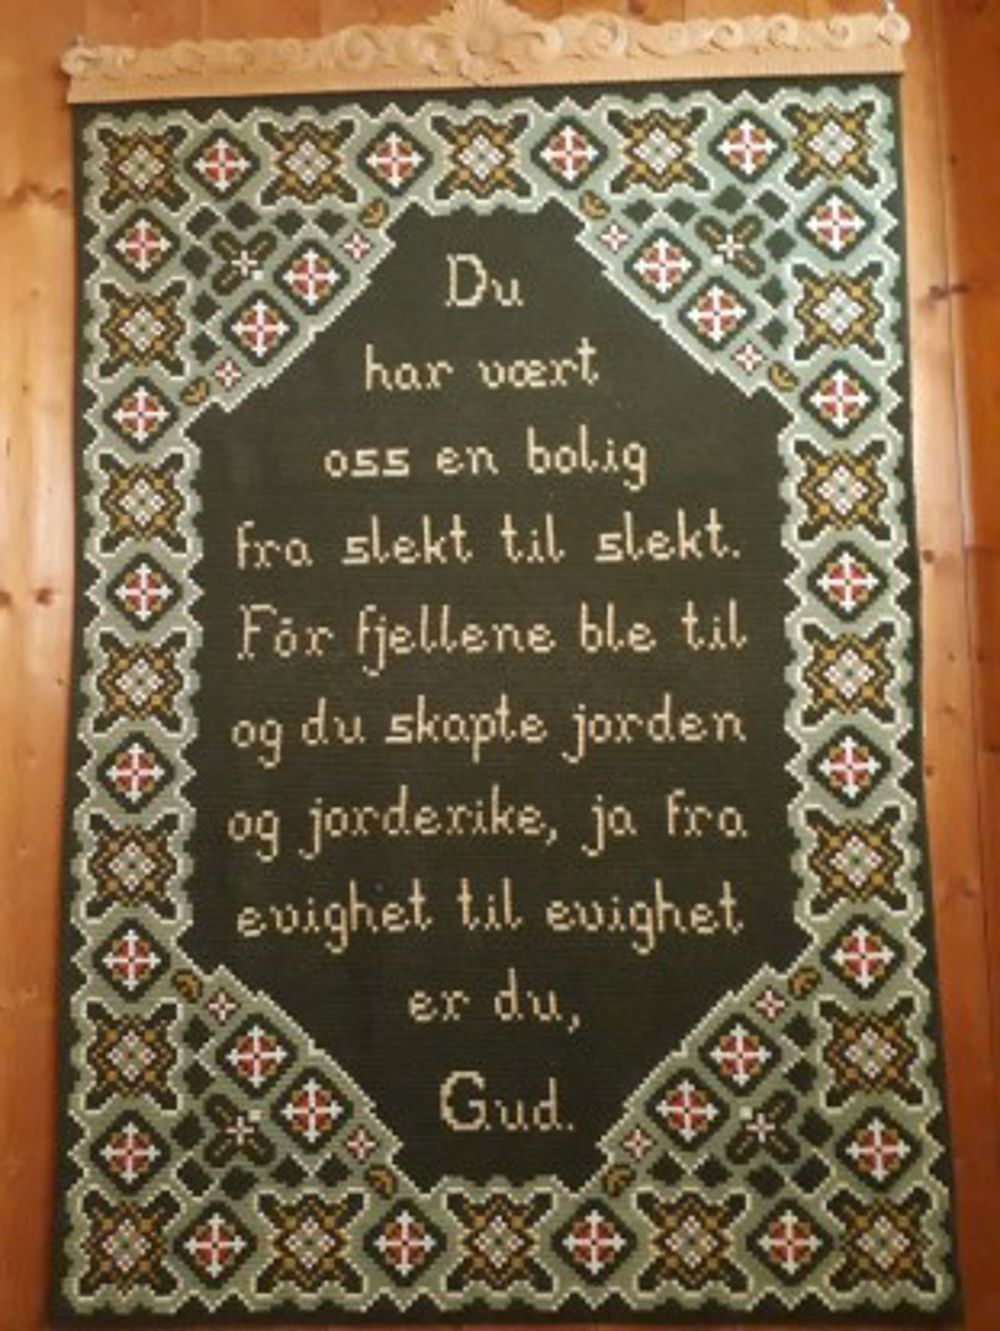 Du
har vært
oss en bolig
fra slekt til slekt.
Før fjellene ble til
og du skapte jorden
og jorderike, ja fra
evighet til evighet
er du,
Gud.